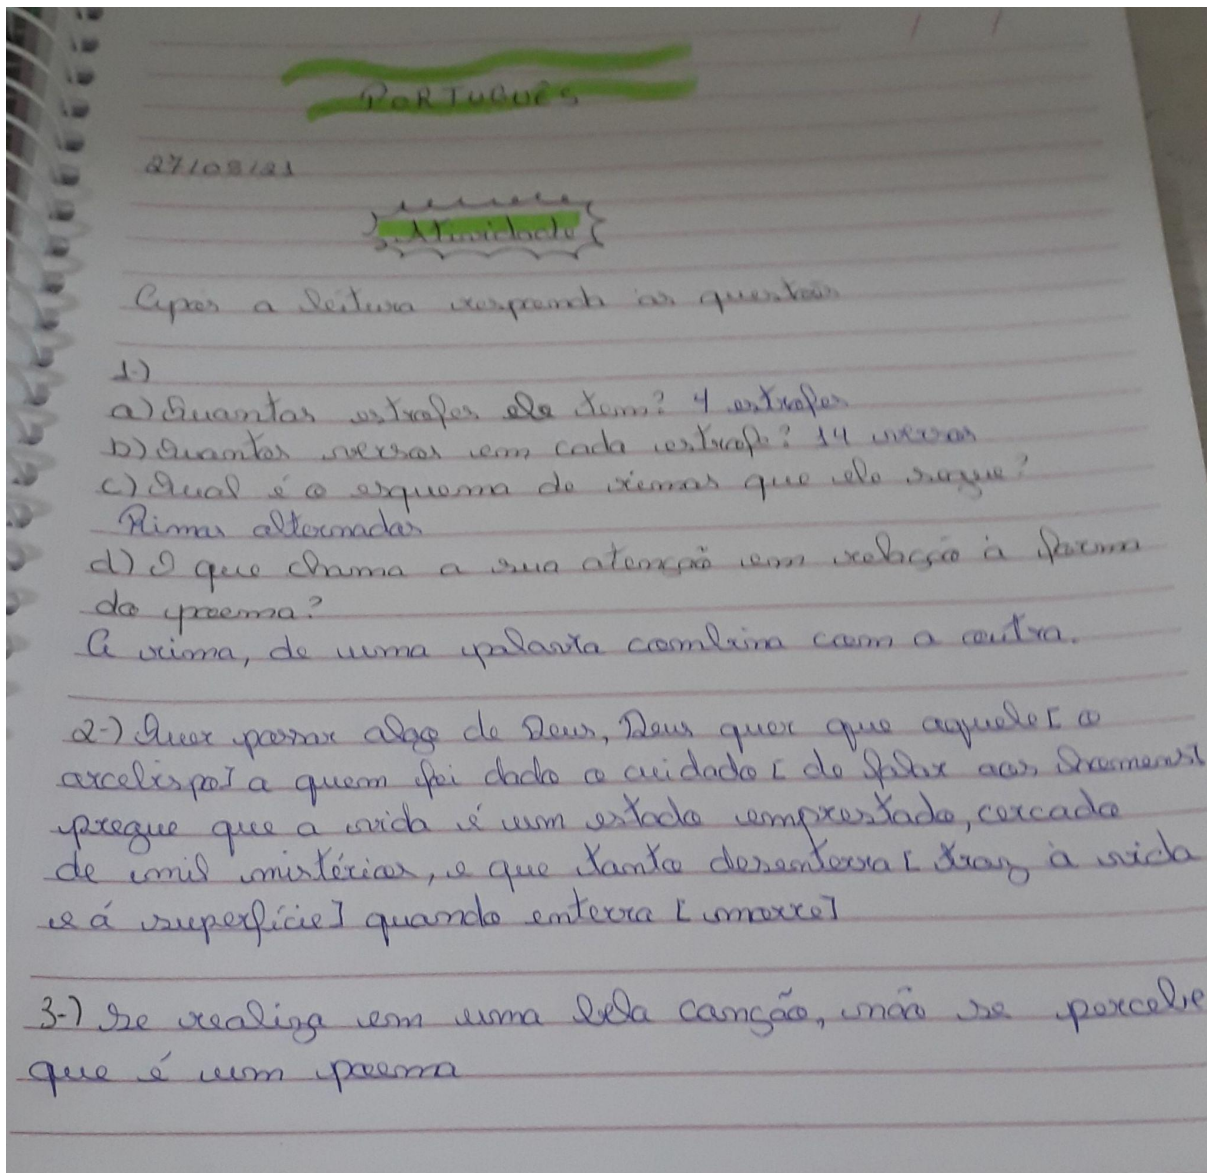 PORTUGUÊS
27/08/21
Atividade
Após a leitura responda as questões
1-)
a) Quantas estrofes ele tem? 4 estrofes
b) Quantos versos em cada estrofe? 14 versos
c) Qual é o esquema de rimas que ele segue?
Rimas alternadas
d) O que chama a sua atenção em relação à forma
do poema?
A rima, de uma palavra combina com a outra.
2-) Quer passar algo de Deus, Deus quer que aquele [ o
arcebispo] a quem foi dado o cuidado [ de falar aos homens]
pregue que a vida é um estado emprestado, cercado
de mil mistérios, e que tanto desenterra [ traz à vida
e á superfície] quando enterra [ morre]
3-) Se realiza em uma bela canção, não se percebe
que é um poema